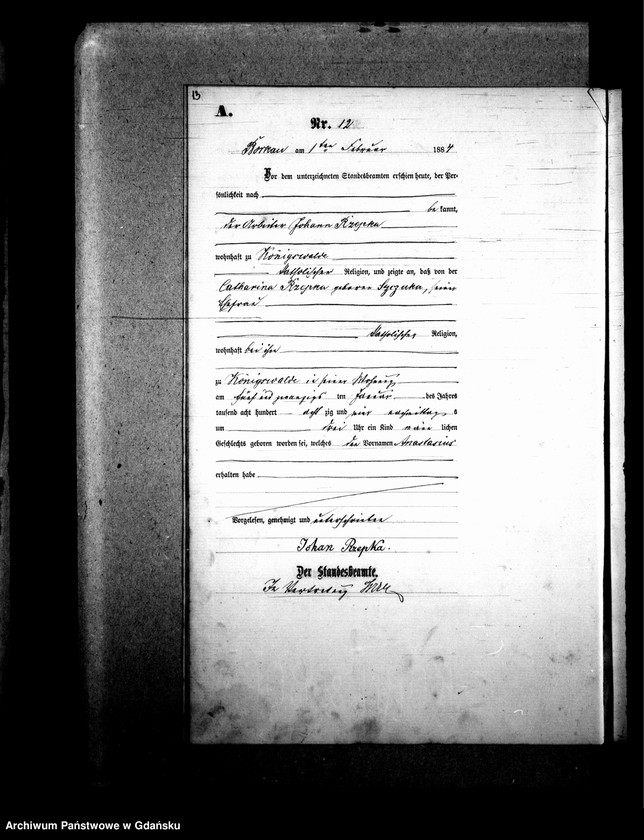 13
A.
Nr. 12
Borkau am 1ten Februar 1884
Vor dem unterzeichneten Standesbeamten erschien heute, der Per-
sönlichkeit nach
bekannt,
der Arbeiter Johann Rzepka
wohnhaft zu Königswalde
katholischer Religion, und zeigte an, daß von der
Catharina Rzepka geboren seiner
Ehefrau
katholischer Religion,
wohnhaft bei ihm
zu Königswalde in seiner Wohnung
am fünf und zwanzigs ten Januar des Jahres
tausend acht hundert achtzig und vier nachmittags
um drei Uhr ein Kind männlichen
Geschlechts geboren worden sei, welches den Vornamen Anastasius
erhalten habe
Vorgelesen, genehmigt und unterschrieben
Johan Rzepka.
Der Standesbeamte.
In Vertretung
Archiwum Państwowe w Gdańsku